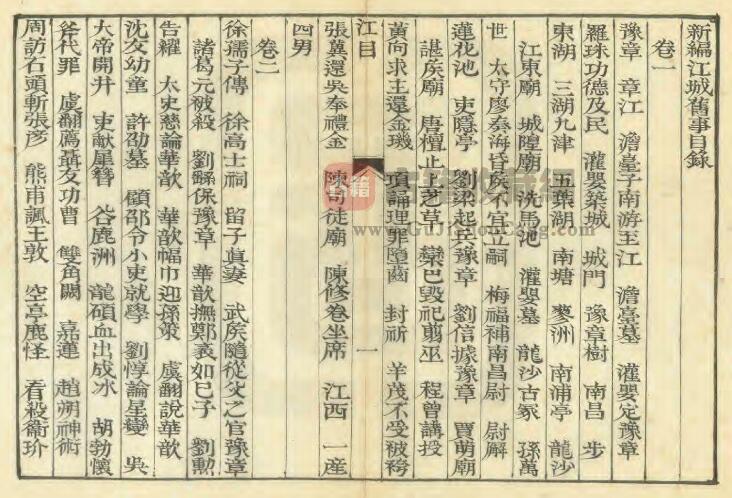 新編江城舊事目錄
卷一
豫章 章江 澹臺子南游至江 澹臺墓 灌嬰定豫章
羅珠功德及民 灌嬰築城 城門 豫章樹 南昌 步
東湖 三湖九津 五葉湖 南塘 蓼洲 南浦亭 龍沙
江東廟 城隍廟 洗馬池 灌嬰墓 龍沙古冢 孫萬
世 太守廖奏海昏矦不宜立嗣 梅福補南昌尉 尉廨
蓮花池 吏隱亭 劉梁起兵豫章 劉信據豫章 賈萌廟
諶矦廟 唐檀止上芝草 欒巴毀祀翦巫 程曾講授
黃向求主還金璣 項誦理罪墮齒 封祈 羊茂不受被袴
江目 一
張冀還吳奉禮金 陳司徒廟 陳修卷坐席 江西 一產
四男
卷二
徐孺子傳 徐高士祠 留子眞妻 武矦隨從父之官豫章
諸葛元被殺 劉繇保豫章 華歆撫鄭表如已子 劉勳
告糴 太史慈論華歆 華歆幅巾迎孫策 虞翻說華歆
沈友幼童 許劭墓 顧邵令小吏就學 劉惇論星變 吳
大帝開井 吏獻犀簪 谷鹿洲 龍碩血出成冰 胡勃懷
斧代罪 虞翻薦聶友功曹 雙角闕 嘉蓮 趙朔神術
周訪石頭斬張彥 熊甫諷王敦 空亭鹿怪 看殺衞玠
www.GuJiShouCang.com